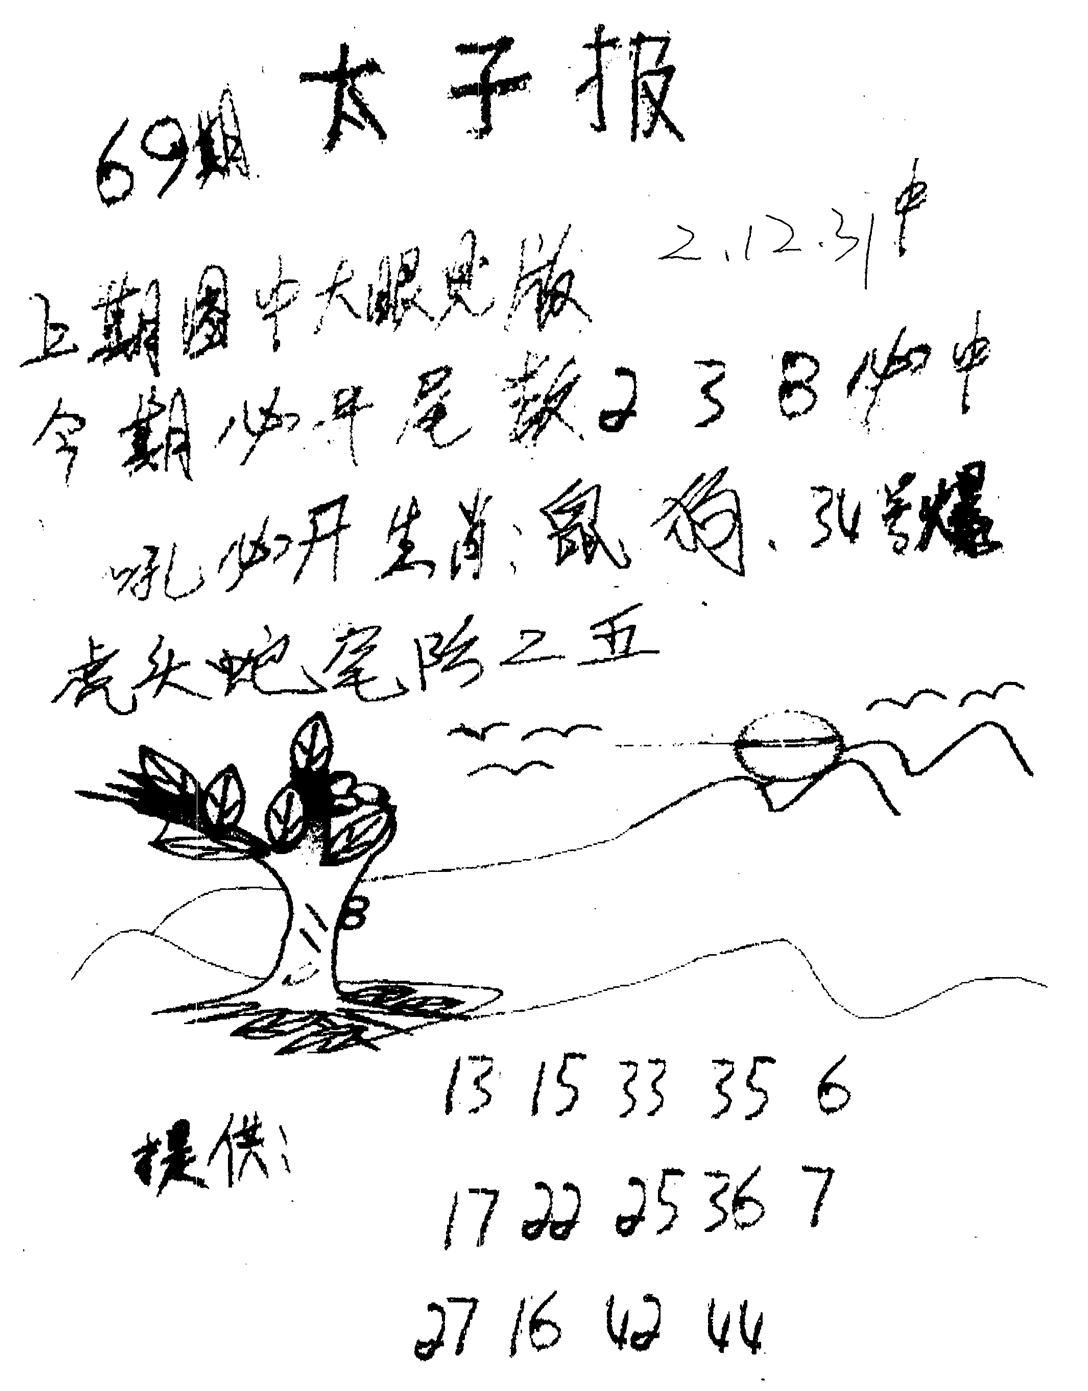 太子报
69期
2.12.31中
上期图中大眼见版
今期必开尾数2 3 8必中
吼必开生肖:鼠 狗.34号爆
虎头蛇尾防二五
8
13 15 33 35 6
提供:
17 22 25 36 7
27 16 42 44